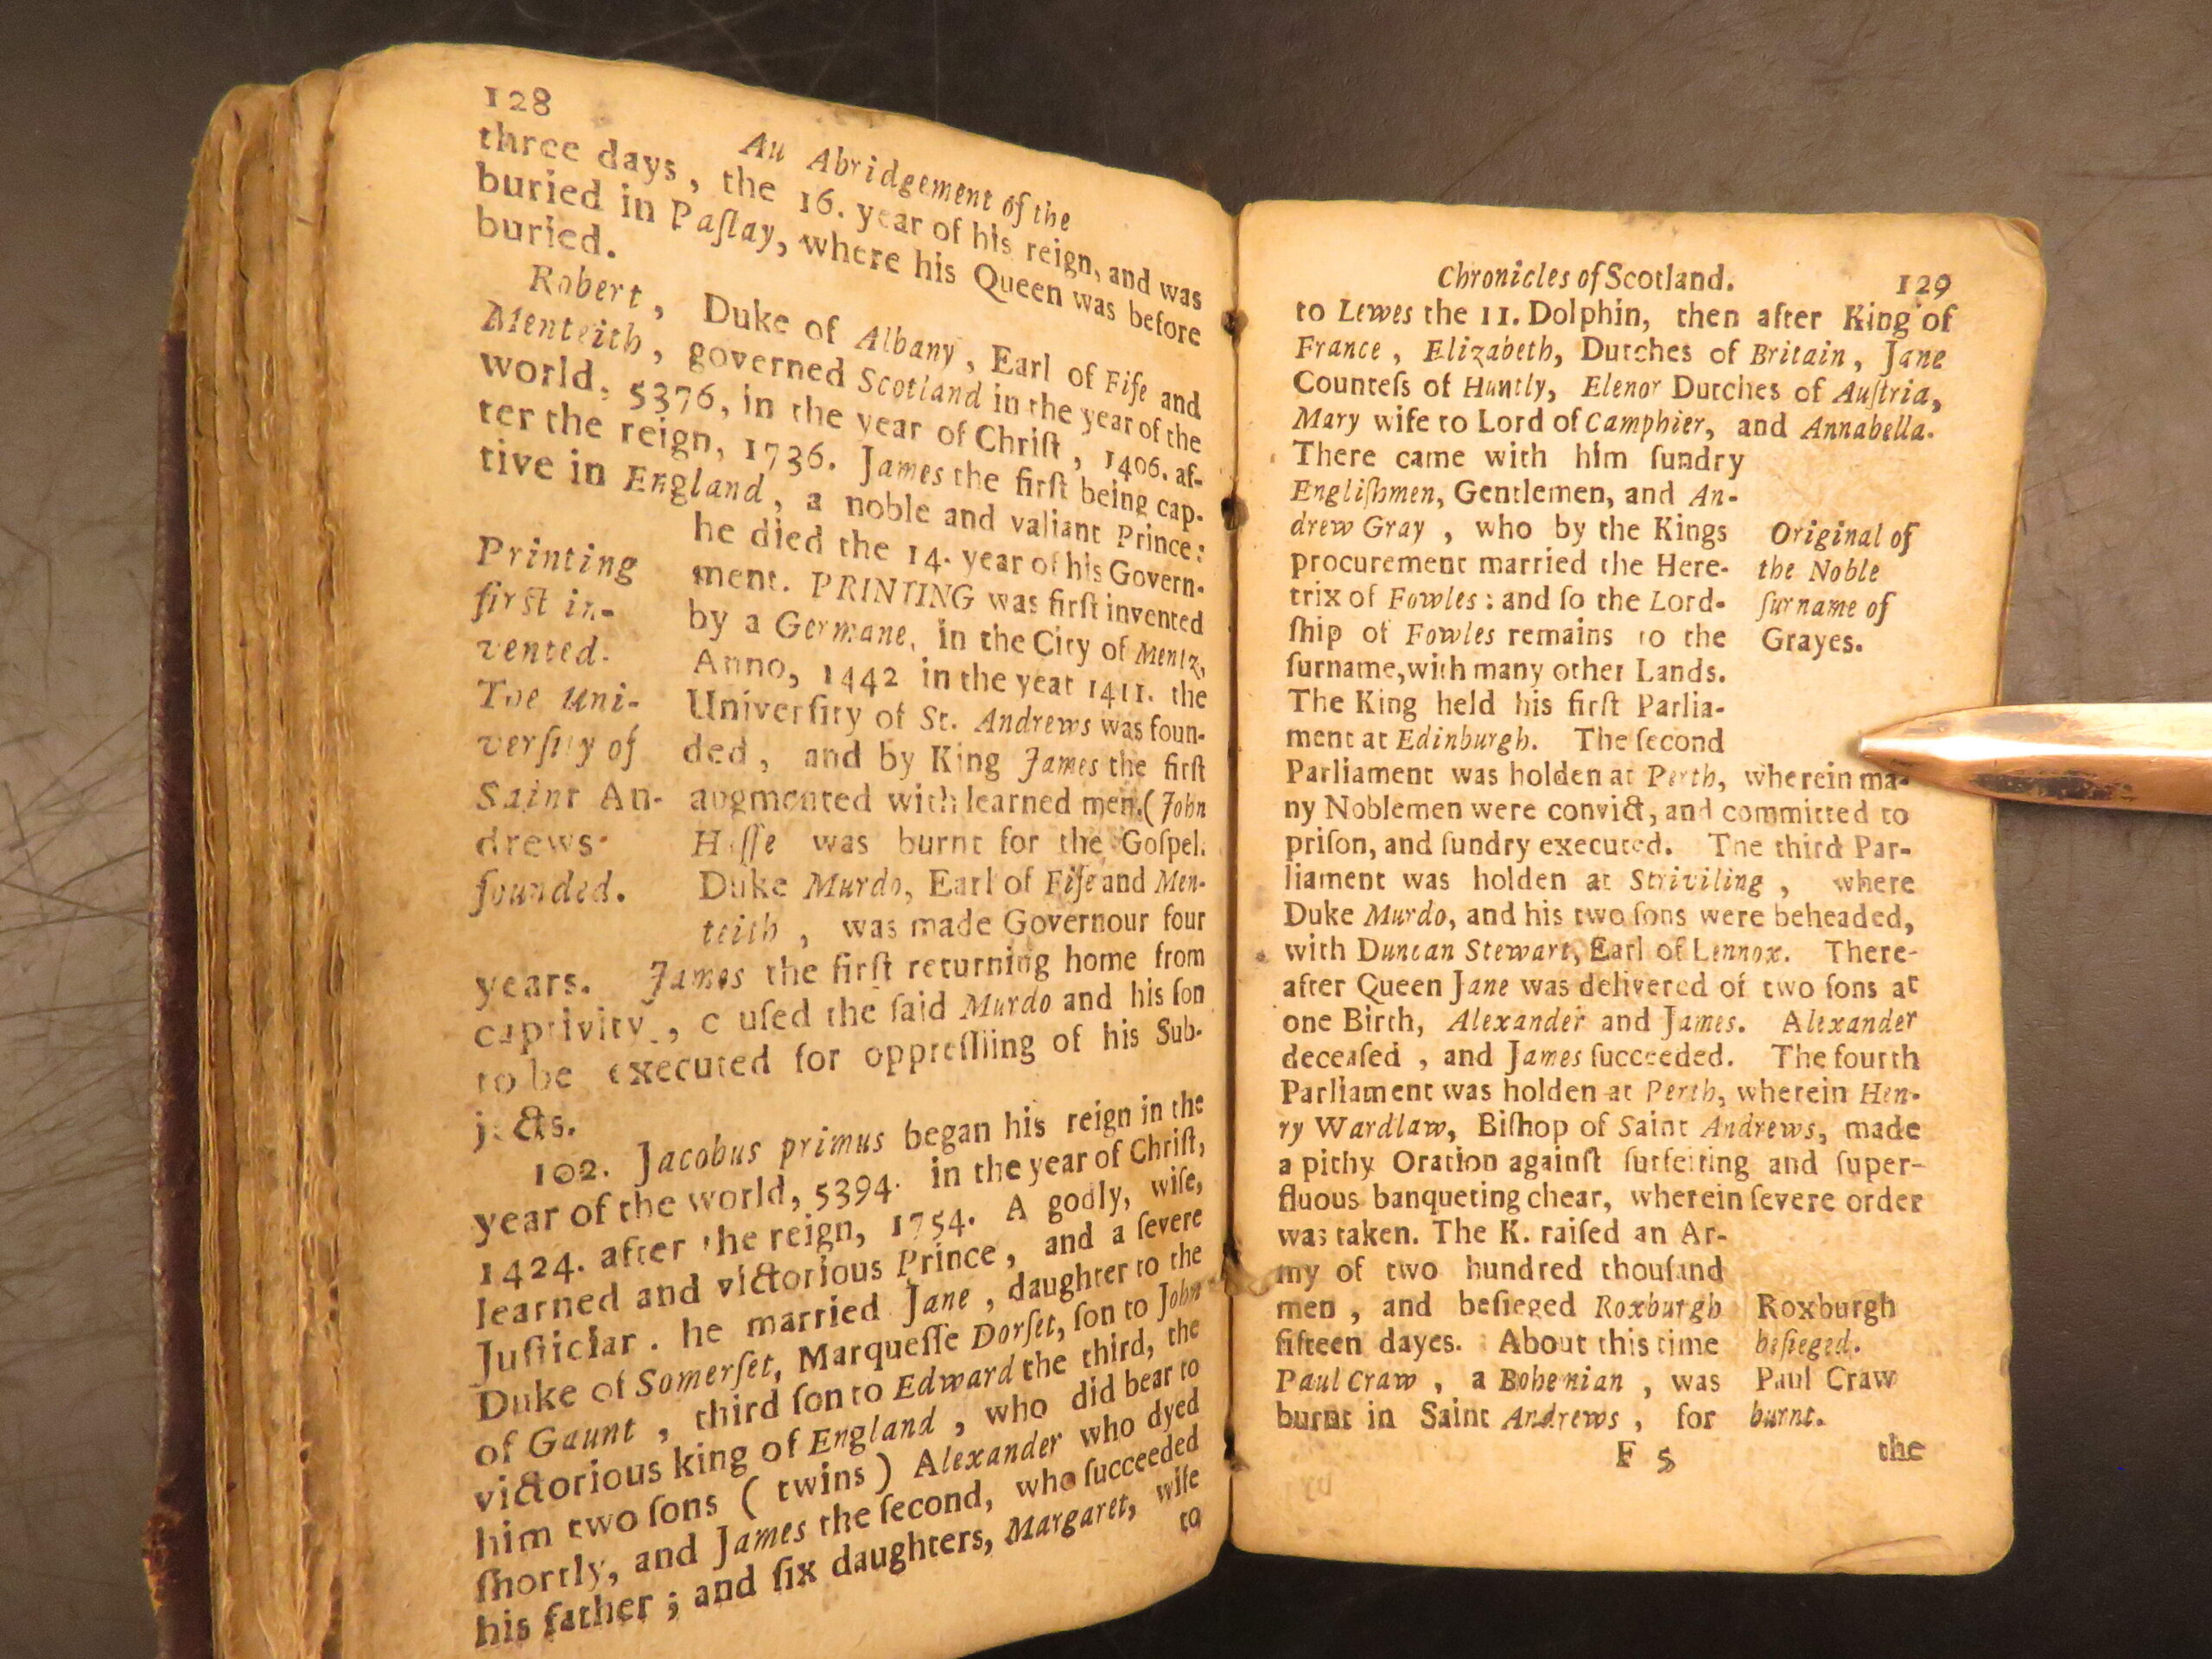 128
Au Abridgement of the
three days, the 16. year of his reign, and was
buried in Paſlay, where his Queen was before
buried.
Robert, Duke of Albany, Earl of Fife and
Menteith, governed Scotland in the year of the
world, 5376, in the year of Chriſt, 1406. af-
ter the reign, 1736. James the firſt being cap-
tive in England, a noble and valiant Prince:
he died the 14. year of his Govern-
ment. PRINTING was firſt invented
by a Germane, in the City of Mentz,
Anno, 1442 in the year 1411. the
Univerſity of St. Andrews was foun-
ded, and by King James the firſt
augmented with learned men. (John
Huſſe was burnt for the Goſpel.
Duke Murdo, Earl of Fife and Men-
teith, was made Governour four
Printing
firſt in-
vented.
The Uni-
verſity of
Saint An-
drews
founded.
years. James the firſt returning home from
captivity, c uſed the ſaid Murdo and his ſon
to be executed for oppreſſiing of his Sub-
jects.
102. Jacobus primus began his reign in the
year of the world, 5394. in the year of Chriſt,
1424. after the reign, 1754. A godly, wiſe,
learned and victorious Prince, and a ſevere
Juſticiar. he married Jane, daughter to the
Duke of Somerſet, Marqueſſe Dorſet, ſon to John
of Gaunt, third ſon to Edward the third, the
victorious king of England, who did bear to
him two ſons (twins) Alexander who dyed
ſhortly, and James the ſecond, who ſucceeded
his father; and ſix daughters, Margaret, wife
to
Chronicles of Scotland. 129
to Lewes the 11. Dolphin, then after King of
France, Elizabeth, Dutches of Britain, Jane
Counteſs of Huntly, Elenor Dutches of Auſtria,
Mary wife to Lord of Camphier, and Annabella.
There came with him ſundry
Engliſhmen, Gentlemen, and An-
drew Gray, who by the Kings
procurement married the Here-
trix of Fowles: and ſo the Lord-
ſhip of Fowles remains to the
ſurname, with many other Lands.
The King held his firſt Parlia-
ment at Edinburgh. The ſecond
Original of
the Noble
ſurname of
Grayes.
Parliament was holden at Perth, wherein ma-
ny Noblemen were convict, and committed to
priſon, and ſundry executed. The third Par-
liament was holden at Striviling, where
Duke Murdo, and his two ſons were beheaded,
with Duncan Stewart, Earl of Lennox. There-
after Queen Jane was delivered of two ſons at
one Birth, Alexander and James. Alexander
deceaſed, and James ſucceeded. The fourth
Parliament was holden at Perth, wherein Hen-
ry Wardlaw, Biſhop of Saint Andrews, made
a pithy Oration againſt ſurfeiting and ſuper-
fluous banqueting chear, wherein ſevere order
was taken. The K. raiſed an Ar-
my of two hundred thouſand
men, and beſieged Roxburgh
fifteen dayes. About this time
Paul Craw, a Bohemian, was
burnt in Saint Andrews, for
Roxburgh
beſieged.
Paul Craw
burnt.
F 5 the